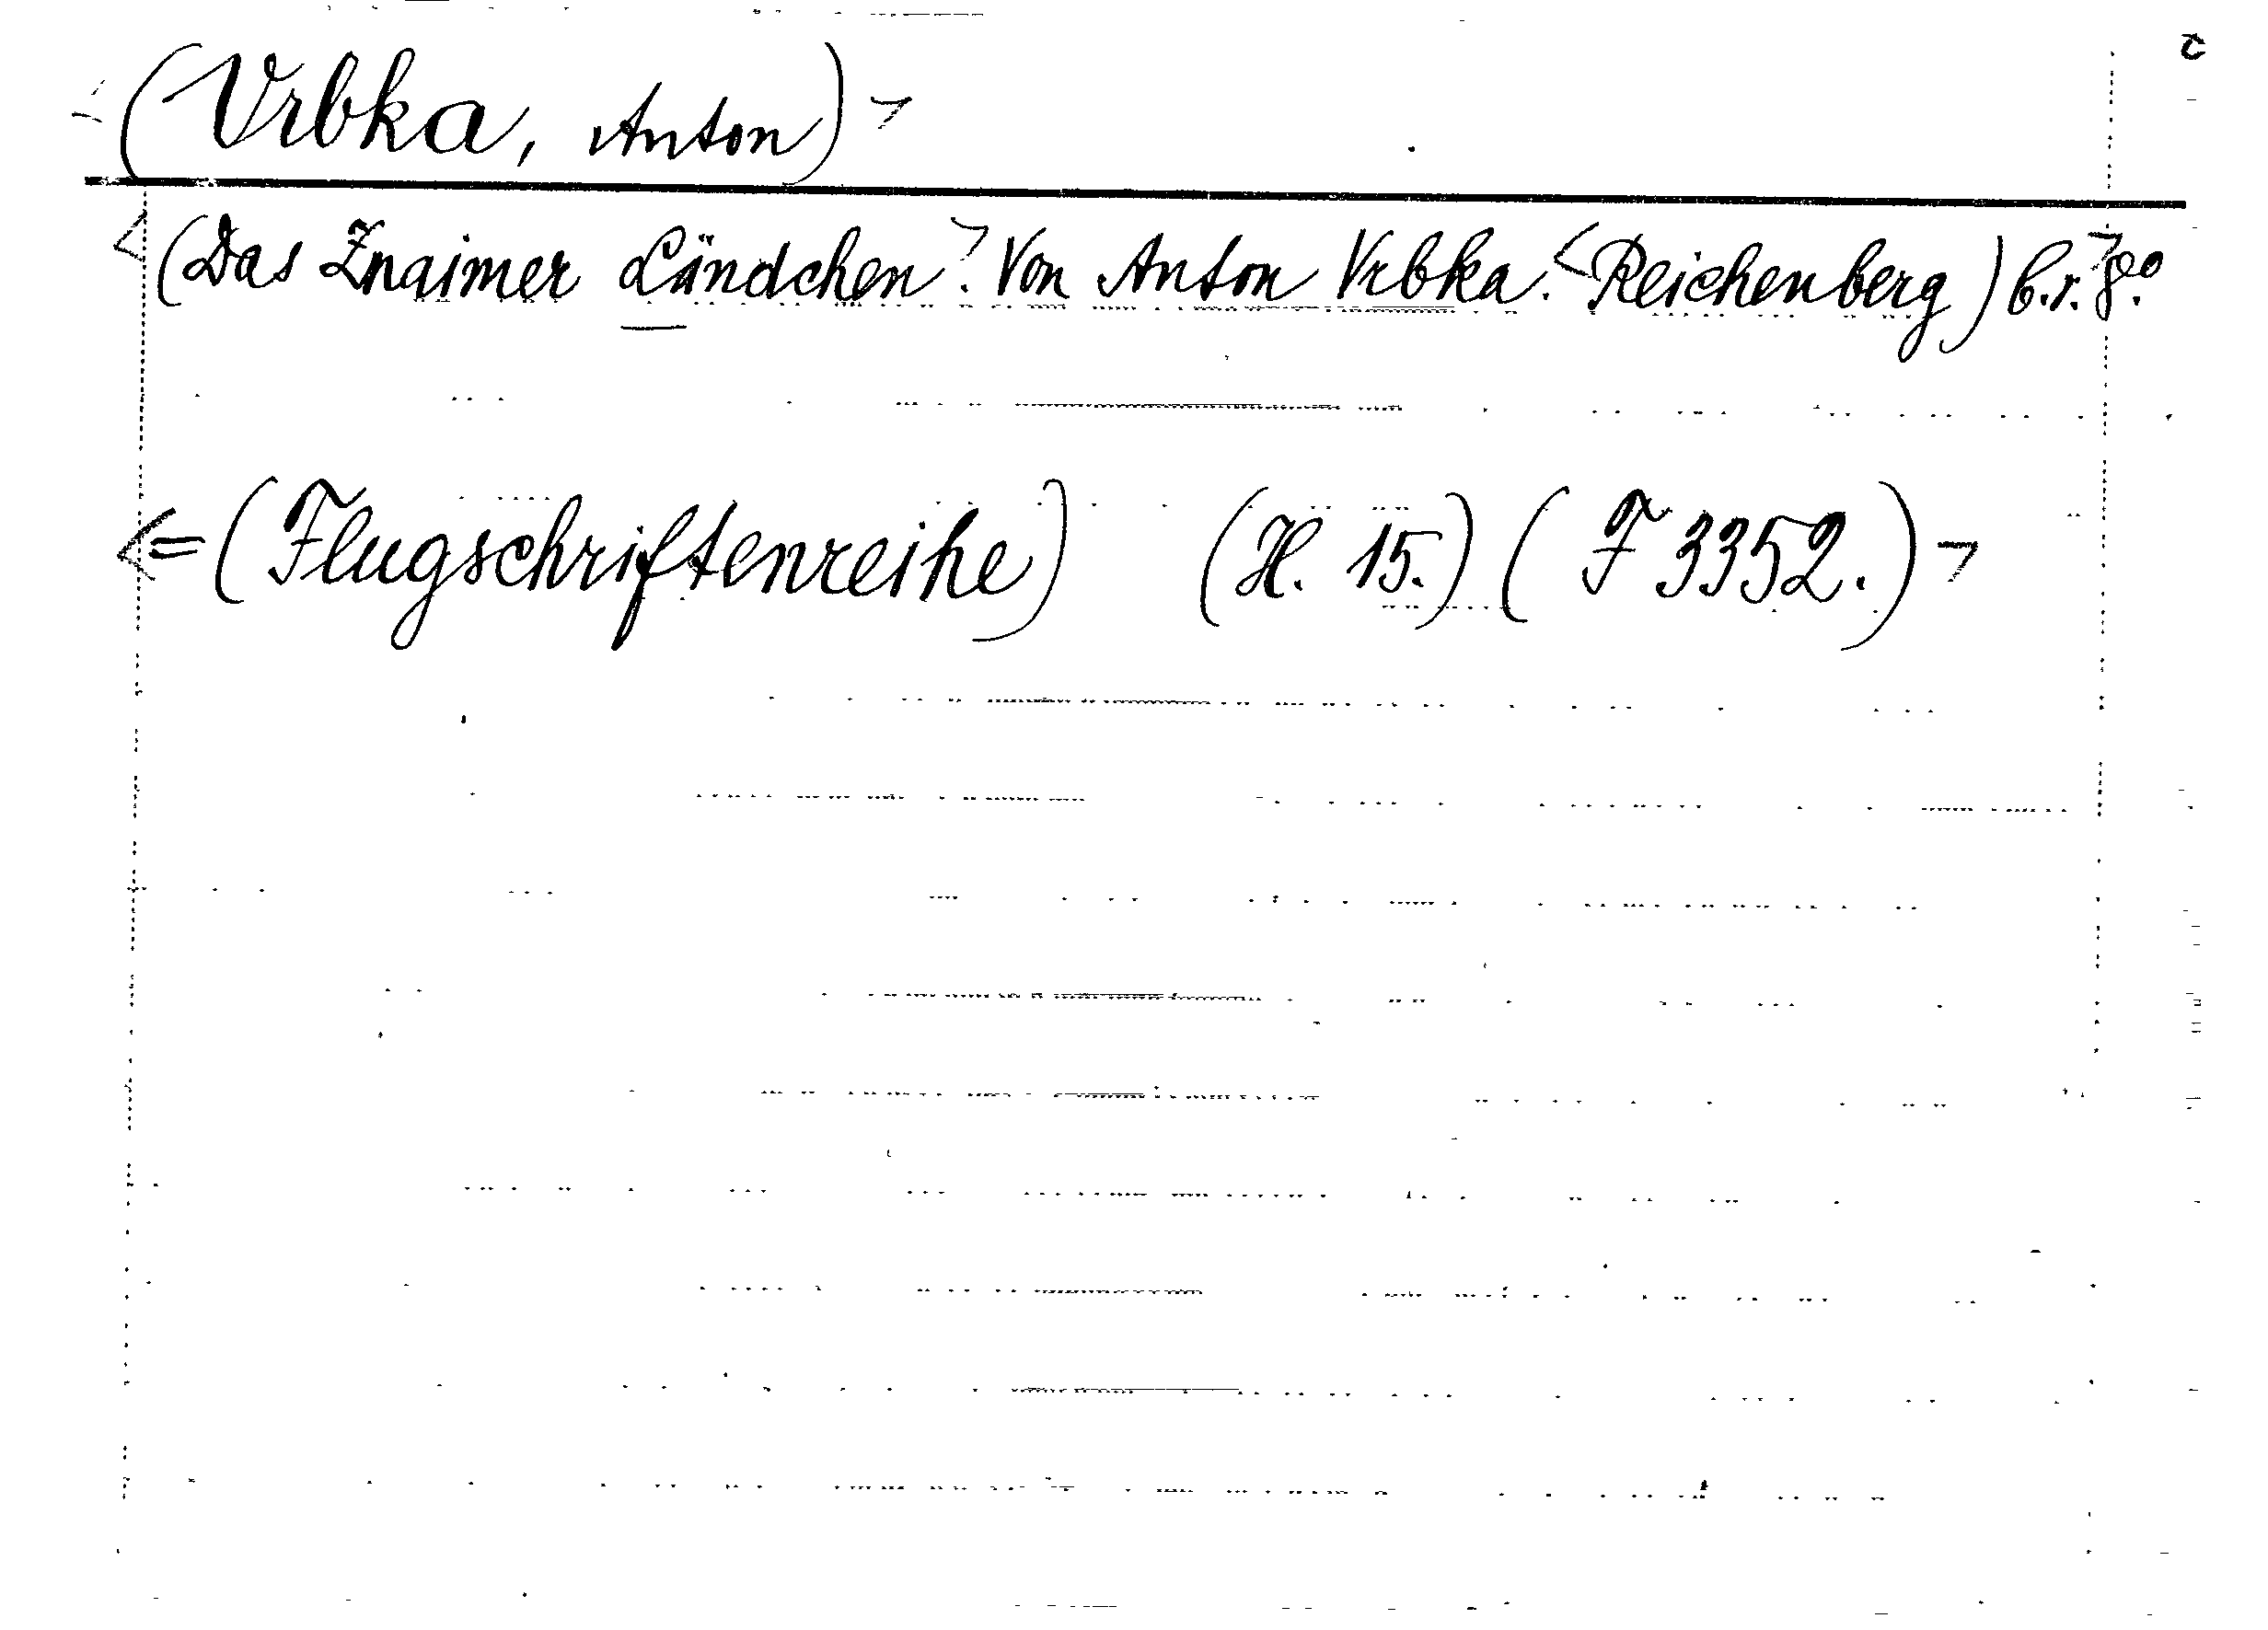 c
<(Vrbka, Anton)>
<(Das Znaimer Ländchen>. Von Anton Vrbka. <Reichenberg) b.r.> 8.º
<=(Flugschriftenreihe) (H. 15.) (F 3352.)>